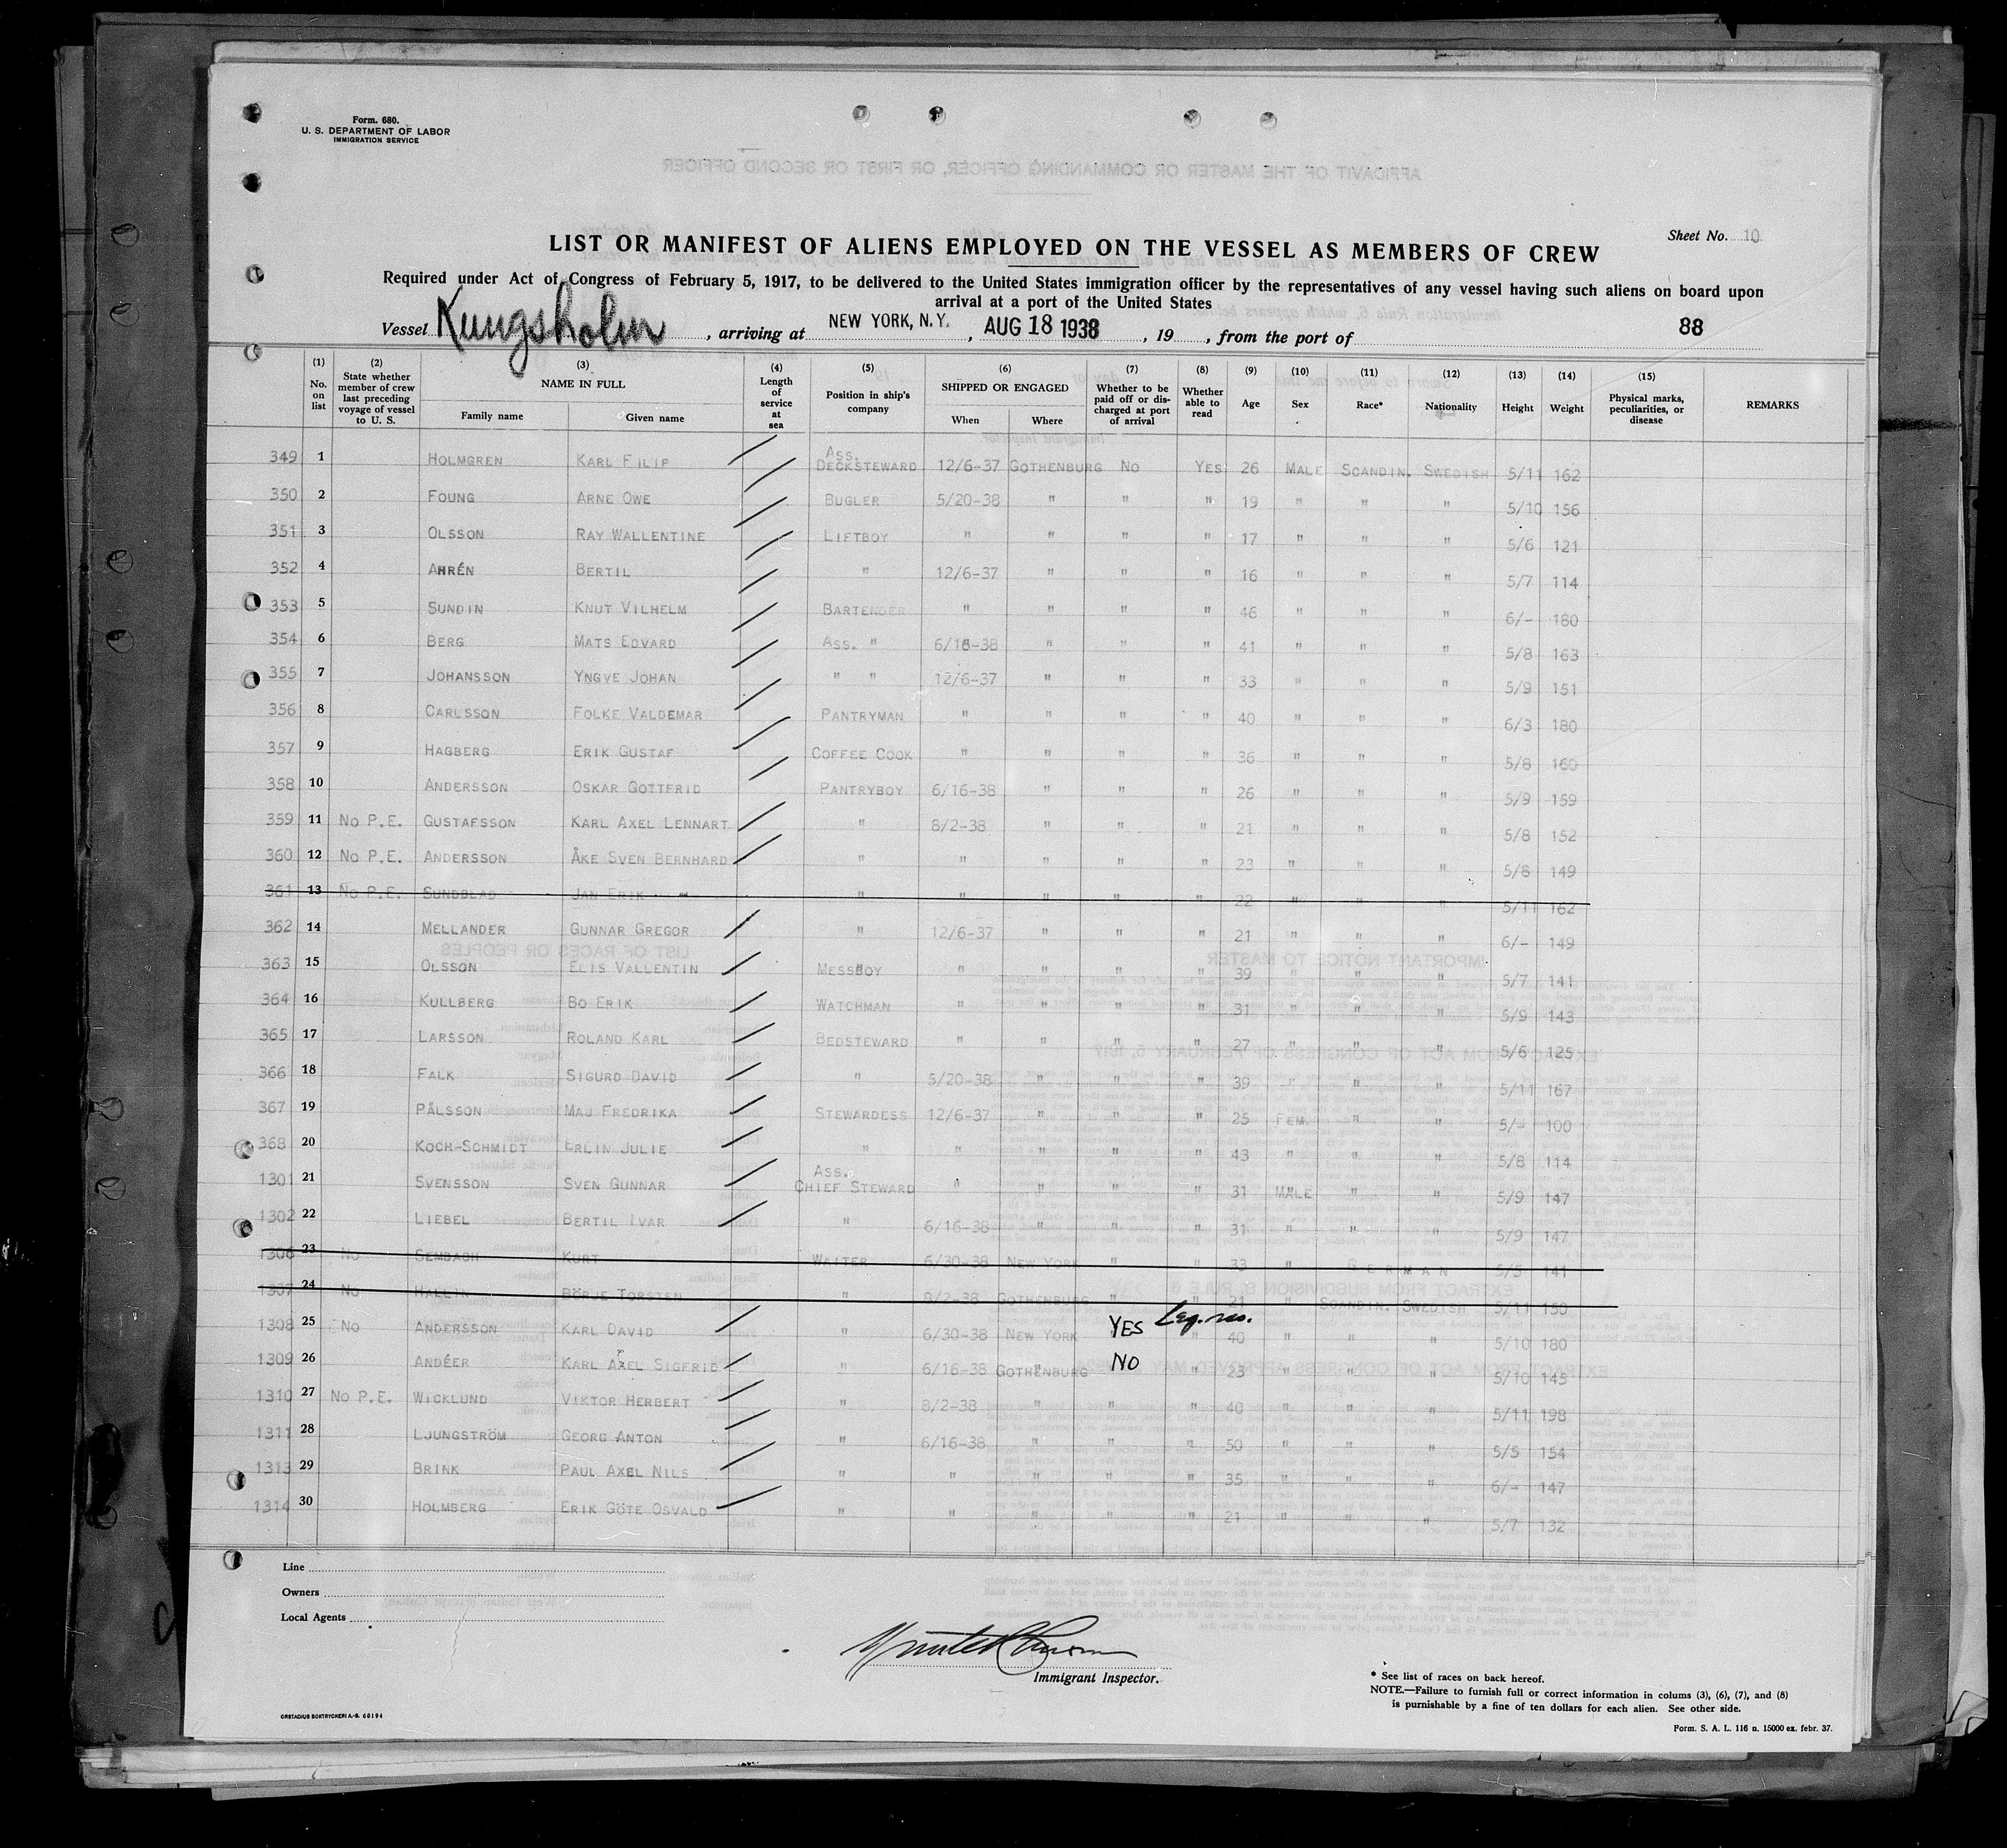 Form. 680.
U. S. DEPARTMENT OF LABOR
IMMIGRATION SERVICE
LIST OR MANIFEST OF ALIENS EMPLOYED ON THE VESSEL AS MEMBERS OF CREW
Sheet No. 10
Required under Act of Congress of February 5, 1917, to be delivered to the United States immigration officer by the representatives of any vessel having such aliens on board upon
arrival at a port of the United States
Vessel Kungsholm, arriving at NEW YORK, N.Y., AUG 18 1938, 19, from the port of 88
(1) No. on list (2) State whether member of crew last preceding voyage of vessel to U. S. (3) NAME IN FULL Family name Given name (4) Length of service at sea (5) Position in ship's company (6) SHIPPED OR ENGAGED When Where (7) Whether to be paid off or discharged at port of arrival (8) Whether able to read (9) Age (10) Sex (11) Race* (12) Nationality (13) Height (14) Weight (15) Physical marks, peculiarities, or disease REMARKS
349 1 HOLMGREN KARL FILIP ASS. DECKSTEWARD 12/6-37 GOTHENBURG NO YES 26 MALE SCANDIN. SWEDISH 5/11 162
350 2 FOUNG ARNE OWE BUGLER 5/20-38 " " " 19 " " " 5/10 156
351 3 OLSSON RAY WALLENTINE LIFTBOY " " " " 17 " " " 5/6 121
352 4 AHRÉN BERTIL " 12/6-37 " " " 16 " " " 5/7 114
353 5 SUNDIN KNUT VILHELM BARTENDER " " " " 46 " " " 6/- 180
354 6 BERG MATS EDVARD ASS. " 6/16-38 " " " 41 " " " 5/8 163
355 7 JOHANSSON YNGVE JOHAN " " 12/6-37 " " " 33 " " " 5/9 151
356 8 CARLSSON FOLKE VALDEMAR PANTRYMAN " " " " 40 " " " 6/3 180
357 9 HAGBERG ERIK GUSTAF COFFEE COOK " " " " 36 " " " 5/8 160
358 10 ANDERSSON OSKAR GOTTFRID PANTRYBOY 6/16-38 " " " 26 " " " 5/9 159
359 11 NO P.E. GUSTAFSSON KARL AXEL LENNART " 8/2-38 " " " 21 " " " 5/8 152
360 12 NO P.E. ANDERSSON ÅKE SVEN BERNHARD " " " " " 23 " " " 5/8 149
361 13 NO P.E. SUNDBLAD JAN ERIK " " " " " 22 " " " 5/11 162
362 14 MELLANDER GUNNAR GREGOR " 12/6-37 " " " 21 " " " 6/- 149
363 15 OLSSON ELIS VALLENTIN MESSBOY " " " " 39 " " " 5/7 141
364 16 KULLBERG BO ERIK WATCHMAN " " " " 31 " " " 5/9 143
365 17 LARSSON ROLAND KARL BEDSTEWARD " " " " 27 " " " 5/6 125
366 18 FALK SIGURD DAVID " 5/20-38 " " " 39 " " " 5/11 167
367 19 PÅLSSON MAJ FREDRIKA STEWARDESS 12/6-37 " " " 25 FEM. " " 5/- 100
368 20 KOCH-SCHMIDT ERLIN JULIE " " " " " 43 " " " 5/8 114
1301 21 SVENSSON SVEN GUNNAR ASS. CHIEF STEWARD " " " " 31 MALE " " 5/9 147
1302 22 LIEBEL BERTIL IVAR " 6/16-38 " " " 31 " " " 5/9 147
1306 23 NO SEMBACH KURT WAITER 6/30-38 NEW YORK " " 33 " GERMAN 5/5 141
1307 24 NO HALLIN BÖRJE TORSTEN " 8/2-38 GOTHENBURG " " 21 " SCANDIN. SWEDISH 5/11 150
1308 25 NO ANDERSSON KARL DAVID " 6/30-38 NEW YORK YES " 40 " " " 5/10 180
1309 26 ANDÉER KARL AXEL SIGFRID " 6/16-38 GOTHENBURG NO " 23 " " " 5/10 145
1310 27 NO P.E. WICKLUND VIKTOR HERBERT " 8/2-38 " " " 40 " " " 5/11 198
1311 28 LJUNGSTRÖM GEORG ANTON " 6/16-38 " " " 50 " " " 5/5 154
1313 29 BRINK PAUL AXEL NILS " " " " " 35 " " " 6/- 147
1314 30 HOLMBERG ERIK GÖTE OSVALD " " " " " 21 " " " 5/7 132
Line
Owners
Local Agents
Immigrant Inspector.
* See list of races on back hereof.
NOTE.—Failure to furnish full or correct information in colums (3), (6), (7), and (8)
is purnishable by a fine of ten dollars for each alien. See other side.
ORSTADIUS BOKTRYCKERI A.-B. 60194
Form. S. A. L. 116 n. 15000 ex. febr. 37.